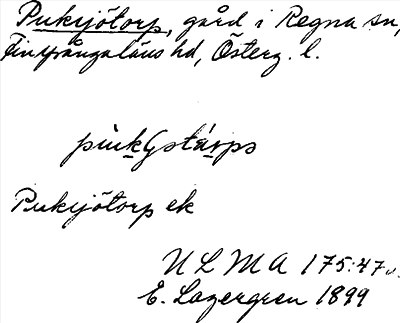 Puksjötorp, gård i Regna sn,
Finspångaläns hd, Österg. l.
Puksjötorp ek
ULMA 175:47
E. Lagergren 1899